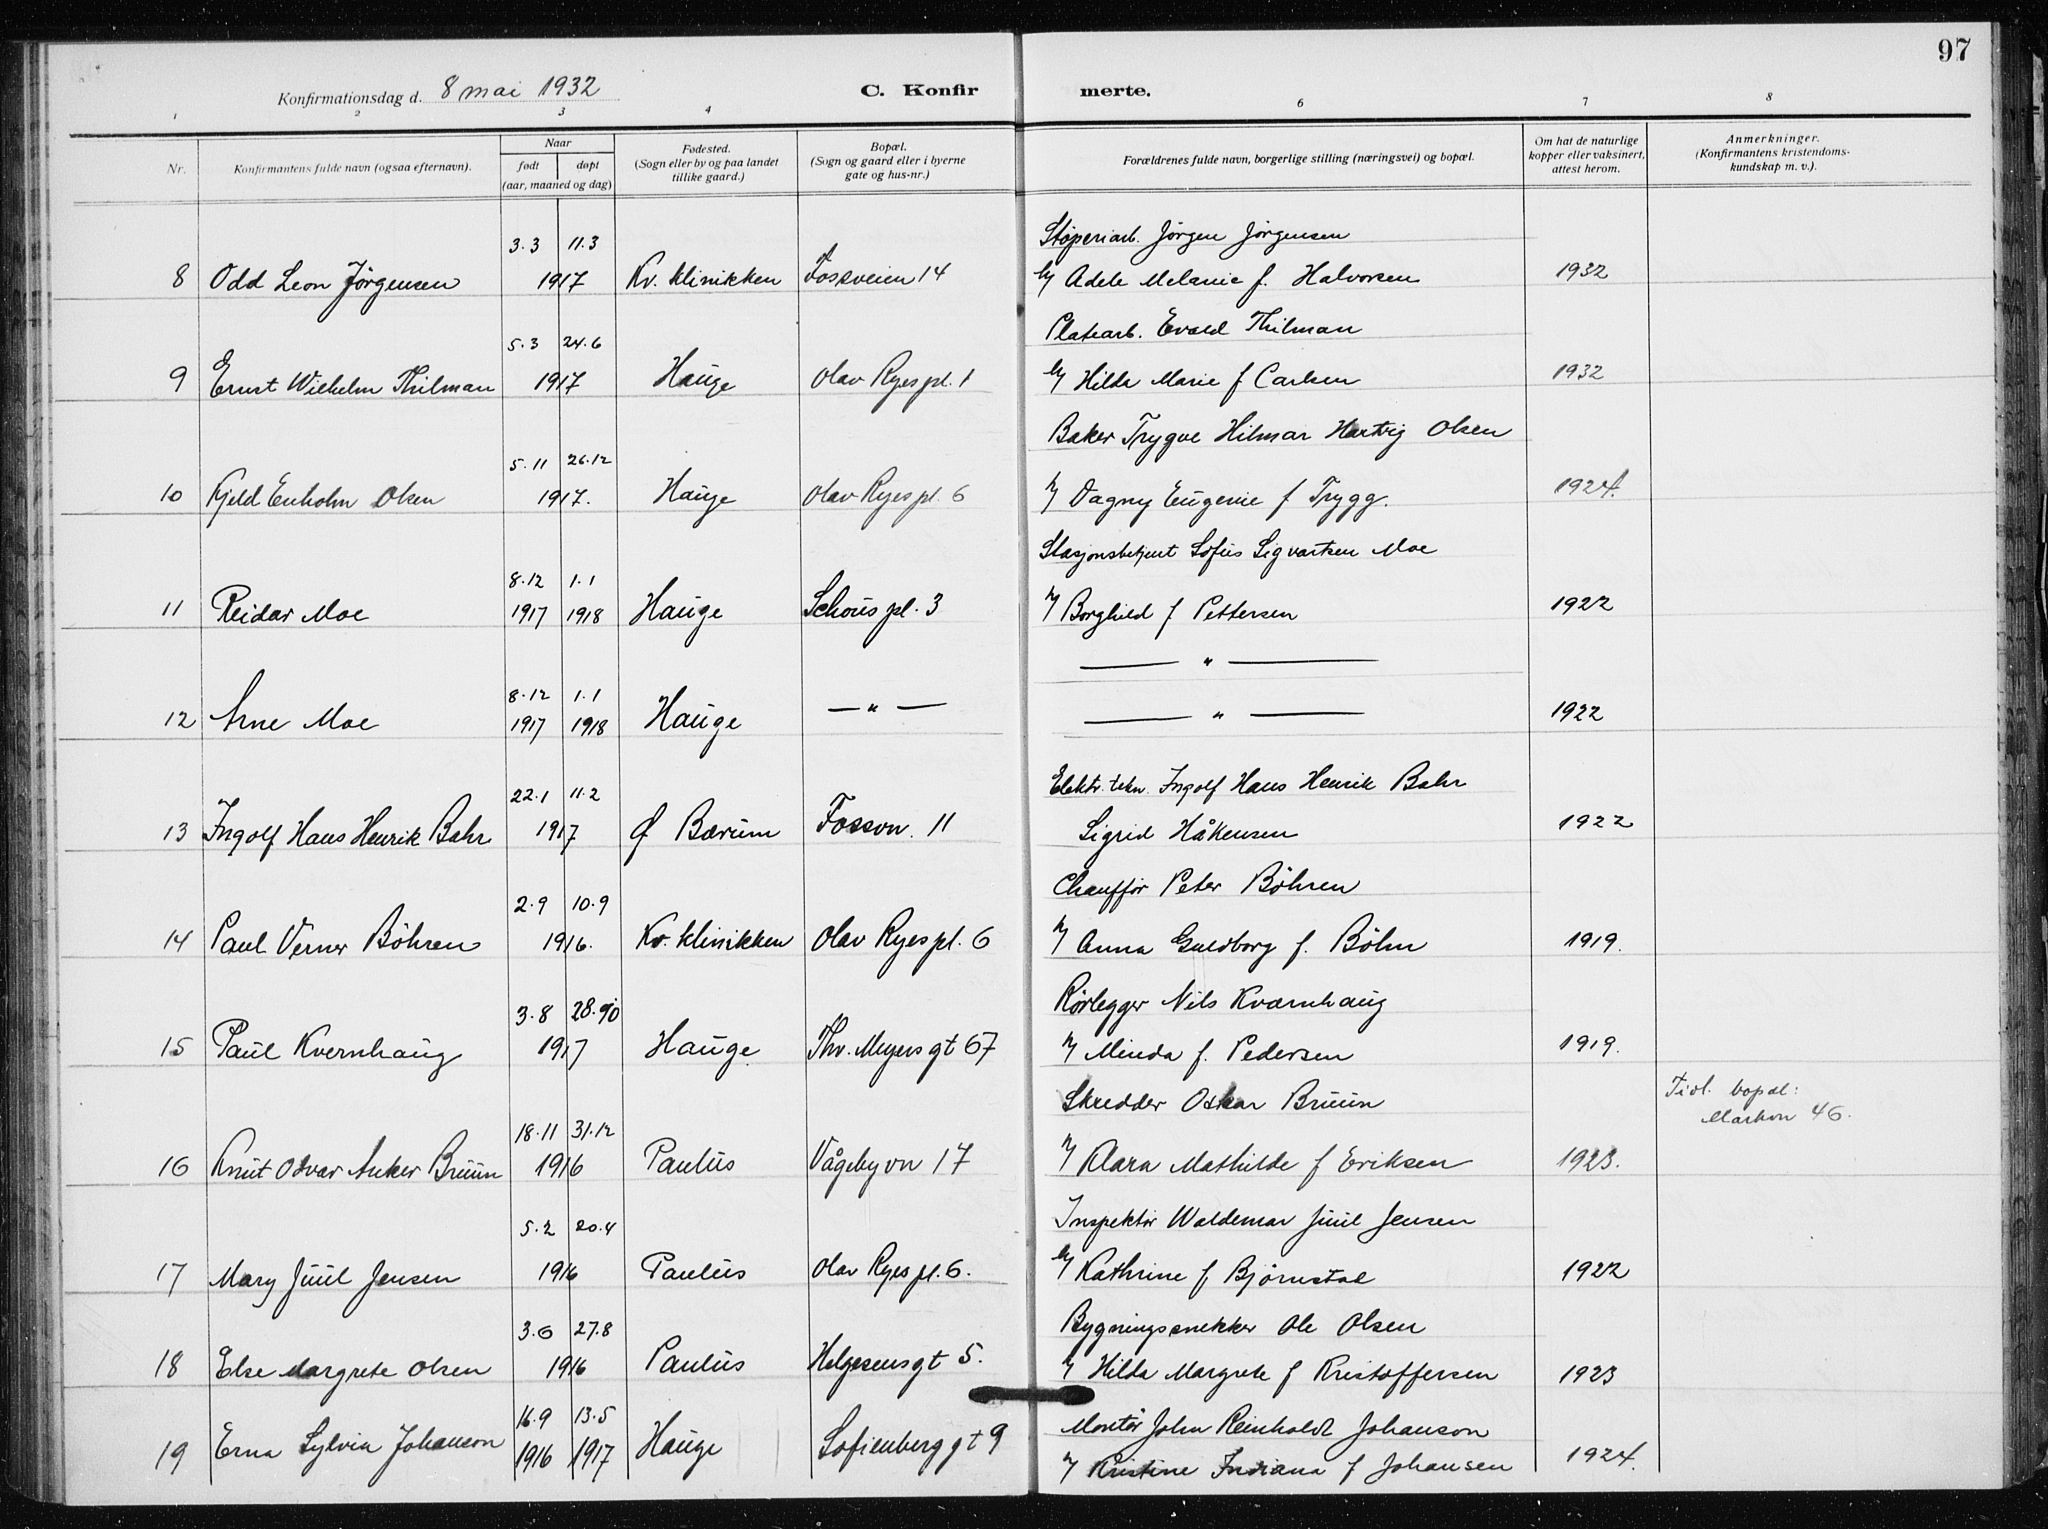 97
Konfirmationsdag d. 8 mai 1932
C. Konfirmerte.
1 2 3 4 6 7 8
Nr. Konfirmantens fulde navn (ogsaa efternavn). Naar født døpt (aar, maaned og dag) Fødested. (Sogn eller by og paa landet tillike gaard.) Bopæl. (Sogn og gaard eller i byerne gate og hus-nr.) Forældrenes fulde navn, borgerlige stilling (næringsvei) og bopæl. Om hat de naturlige kopper eller vaksinert, attest herom. Anmerkninger. (Konfirmantens kristendoms-kundskap m. v.).
3.3 11.3 Støperiarb. Jørgen Jørgensen
8 Odd Leon Jørgensen 1917 Kv. klinikken Fossveien 14 Adele Melanie f. Halvorsen 1932
5.3 24.6 Platearb. Evald Thilman
9 Ernst Wilhelm Thilman 1917 Hauge Olav Ryes pl. 1 Hilda Marie f Carlsen 1932
5.11 26.12 Baker Trygve Hilmar Hartvig Olsen
10 Kjeld Enholm Olsen 1917. Hauge Olav Ryes pl. 6 Dagny Eugenie f Trygg. 1924.
8.12 1.1 Stasjonsbetjent Sofus Sigvartsen Moe
11 Reidar Moe 1917 1918 Hauge Schous pl. 3 Borghild f Pettersen 1922
8.12 1.1 — " —
12 Arne Moe 1917 1918 Hauge — " — — " — 1922
22.1 11.2 Elektr. tekn. Ingolf Hans Henrik Bahr
13 Ingolf Hans Henrik Bahr 1917 Ø Bærum Fossvn. 11 Sigrid Håkensen 1922
2.9 10.9 Chauffør Peter Böhren
14 Paul Verner Böhren 1916. Kv. klinikken Olav Ryes pl. 6 Anna Guldborg f. Böhn 1919.
3.8 28.10 Rørlegger Nils Kværnhaug
15 Paul Kvernhaug 1917 Hauge Thv. Meyers gt 67 Minda f. Pedersen 1919.
18.11 31.12 Skredder Oskar Bruun Tidl. bopæl: Markvn 46.
16 Knut Odvar Anker Bruun 1916 Paulus Vågebyvn 17 Klara Mathilde f Eriksen 1923.
5.2 20.4 Inspektør Waldemar Juul Jensen
17 Mary Juul Jensen 1916 Paulus Olav Ryes pl. 6. Kathrine f Bjørnstad 1922
3.6 27.8 Bygningssnekker Ole Olsen
18 Else Margrete Olsen 1916 Paulus Helgesens gt 5. Hilda Margrete f Kristoffersen 1923
16.9 13.5 Montør John Reinholdt Johanson
19 Erna Sylvia Johanson 1916 1917 Hauge Sofienberg gt 9 Kristine Indiana f Johansen 1924.